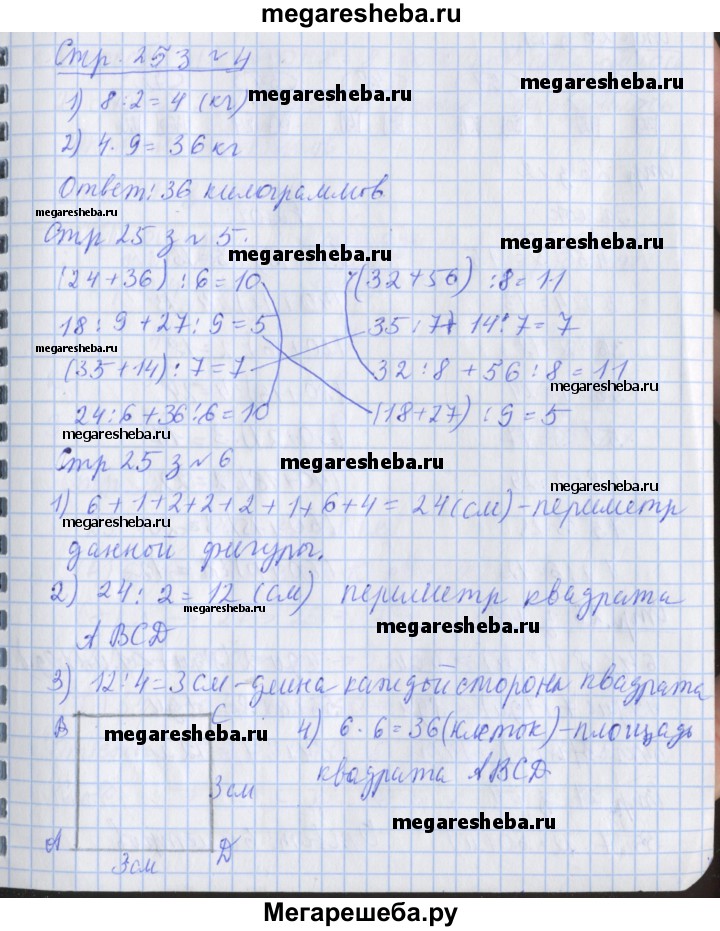 megaresheba.ru
Стр. 25 з №4
megaresheba.ru
1) 8:2=4 (кг) megaresheba.ru
2) 4·9=36кг
Ответ: 36 килограммов
megaresheba.ru
Стр 25 з №5.
megaresheba.ru megaresheba.ru
(24+36) :6=10 (32+56) :8=11
18:9+27:9=5 35:7+14:7=7
megaresheba.ru
(35+14):7=7 32:8+56:8=11
megaresheba.ru
24:6+36:6=10 (18+27) :9=5
megaresheba.ru
Стр 25 з №6 megaresheba.ru
megaresheba.ru
1) 6+1+2+2+2+1+6+4=24(см)-периметр
megaresheba.ru
данной фигуры.
2) 24:2=12 (см) периметр квадрата
megaresheba.ru
АВСD megaresheba.ru
3) 12:4=3см-длина каждой стороны квадрата
В С 4) 6·6=36(клеток)-площадь
megaresheba.ru
квадрата АВСD
3см
megaresheba.ru
А D
3см
Мегарешеба.ру